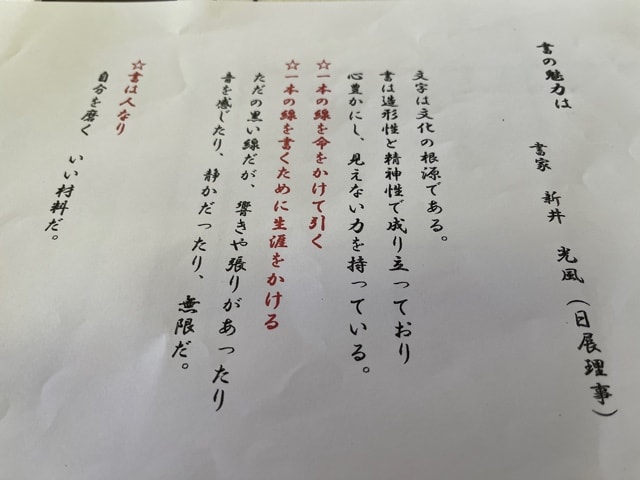 書の魅力は
書家 新井 光風（日展理事）
文字は文化の根源である。
書は造形性と精神性で成り立っており
心豊かにし、見えない力を持っている。
☆一本の線を命をかけて引く
☆一本の線を書くために生涯をかける
ただの黒い線だが、響きや張りがあったり
音を感じたり、静かだったり、無限だ。
☆書は人なり
自分を磨く いい材料だ。